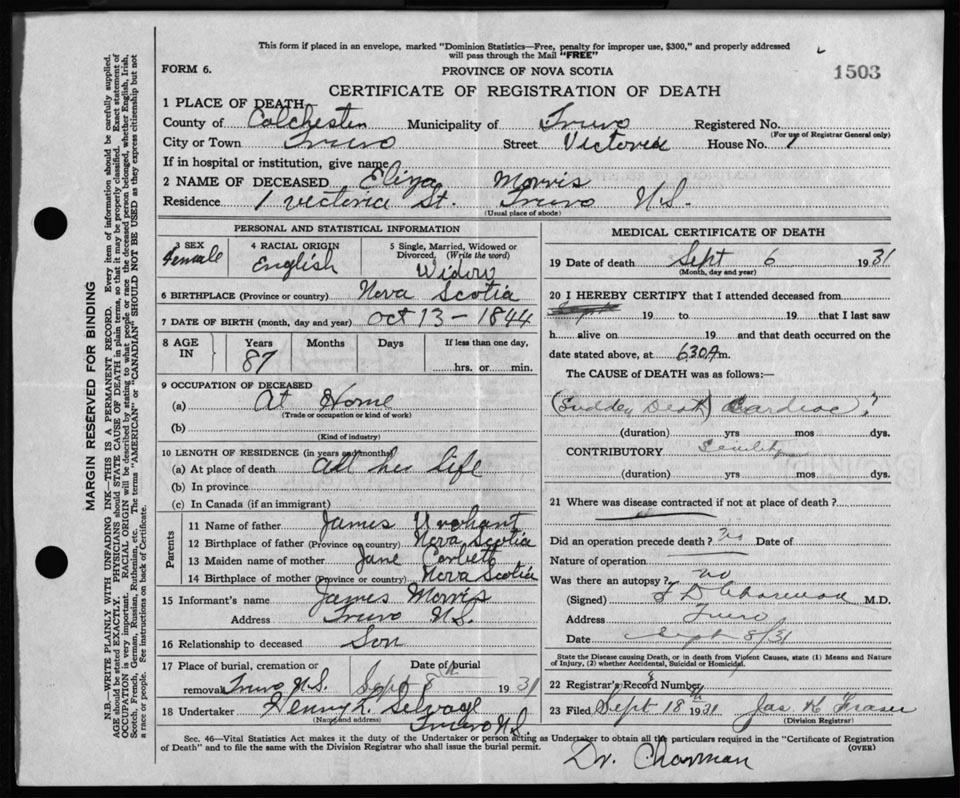 This form if placed in an envelope, marked "Dominion Statistics—Free, penalty for improper use, $300," and properly addressed
will pass through the Mail "FREE"
FORM 6.
PROVINCE OF NOVA SCOTIA
1503
CERTIFICATE OF REGISTRATION OF DEATH
1 PLACE OF DEATH
County of Colchester Municipality of Truro Registered No.
(For use of Registrar General only)
City or Town Truro Street Victoria House No. 1
If in hospital or institution, give name
2 NAME OF DECEASED Eliza Morris
Residence 1 Victoria St. Truro N.S.
(Usual place of abode)
PERSONAL AND STATISTICAL INFORMATION
3 SEX
Female
4 RACIAL ORIGIN
English
5 Single, Married, Widowed or
Divorced. (Write the word)
Widow
6 BIRTHPLACE (Province or country) Nova Scotia
7 DATE OF BIRTH (month, day and year) Oct 13 - 1844
8 AGE
IN
Years
87
Months
Days
If less than one day,
hrs. or min.
9 OCCUPATION OF DECEASED
(a) At Home
(Trade or occupation or kind of work)
(b)
(Kind of industry)
10 LENGTH OF RESIDENCE (in years and months)
(a) At place of death all her life
(b) In province
(c) In Canada (if an immigrant)
Parents
11 Name of father James
12 Birthplace of father (Province or country) Nova Scotia
13 Maiden name of mother Jane Corbett
14 Birthplace of mother (Province or country) Nova Scotia
15 Informant's name James Morris
Address Truro N.S.
16 Relationship to deceased Son
17 Place of burial, cremation or
removal Truro N.S.
Date of burial
Sept 8th 1931
18 Undertaker Henry L. Selvage
(Name and address) Truro N.S.
MEDICAL CERTIFICATE OF DEATH
19 Date of death Sept 6 1931
(Month, day and year)
20 I HEREBY CERTIFY that I attended deceased from
19 to 19 that I last saw
h alive on 19 and that death occurred on the
date stated above, at 6.30 A m.
The CAUSE of DEATH was as follows:—
(Sudden Death) Cardiac ?
(duration) yrs mos dys.
CONTRIBUTORY Senility
(duration) yrs mos dys.
21 Where was disease contracted if not at place of death?
Did an operation precede death? No Date of
Nature of operation
Was there an autopsy? no
(Signed) M.D.
Address Truro
Date Sept 8/31
State the Disease causing Death, or in death from Violent Causes, state (1) Means and Nature
of Injury, (2) whether Accidental, Suicidal or Homicidal.
22 Registrar's Record Number
23 Filed Sept 18th 1931 Jas. K. Fraser
(Division Registrar)
Sec. 46—Vital Statistics Act makes it the duty of the Undertaker or person acting as Undertaker to obtain all the particulars required in the "Certificate of Registration
of Death" and to file the same with the Division Registrar who shall issue the burial permit.
(OVER)
Dr. Charman
MARGIN RESERVED FOR BINDING
N.B.—WRITE PLAINLY WITH UNFADING INK—THIS IS A PERMANENT RECORD. Every item of information should be carefully supplied.
AGE should be stated EXACTLY. PHYSICIANS should STATE CAUSE OF DEATH in plain terms, so that it may be properly classified. Exact statement of
OCCUPATION is very important. RACIAL ORIGIN will be described by stating to what people or race the deceased person belonged, whether English, Irish,
Scotch, French, German, Russian, Ruthenian, etc. The terms "AMERICAN" or "CANADIAN" SHOULD NOT BE USED as they express citizenship but not
a race or people. See instructions on back of Certificate.